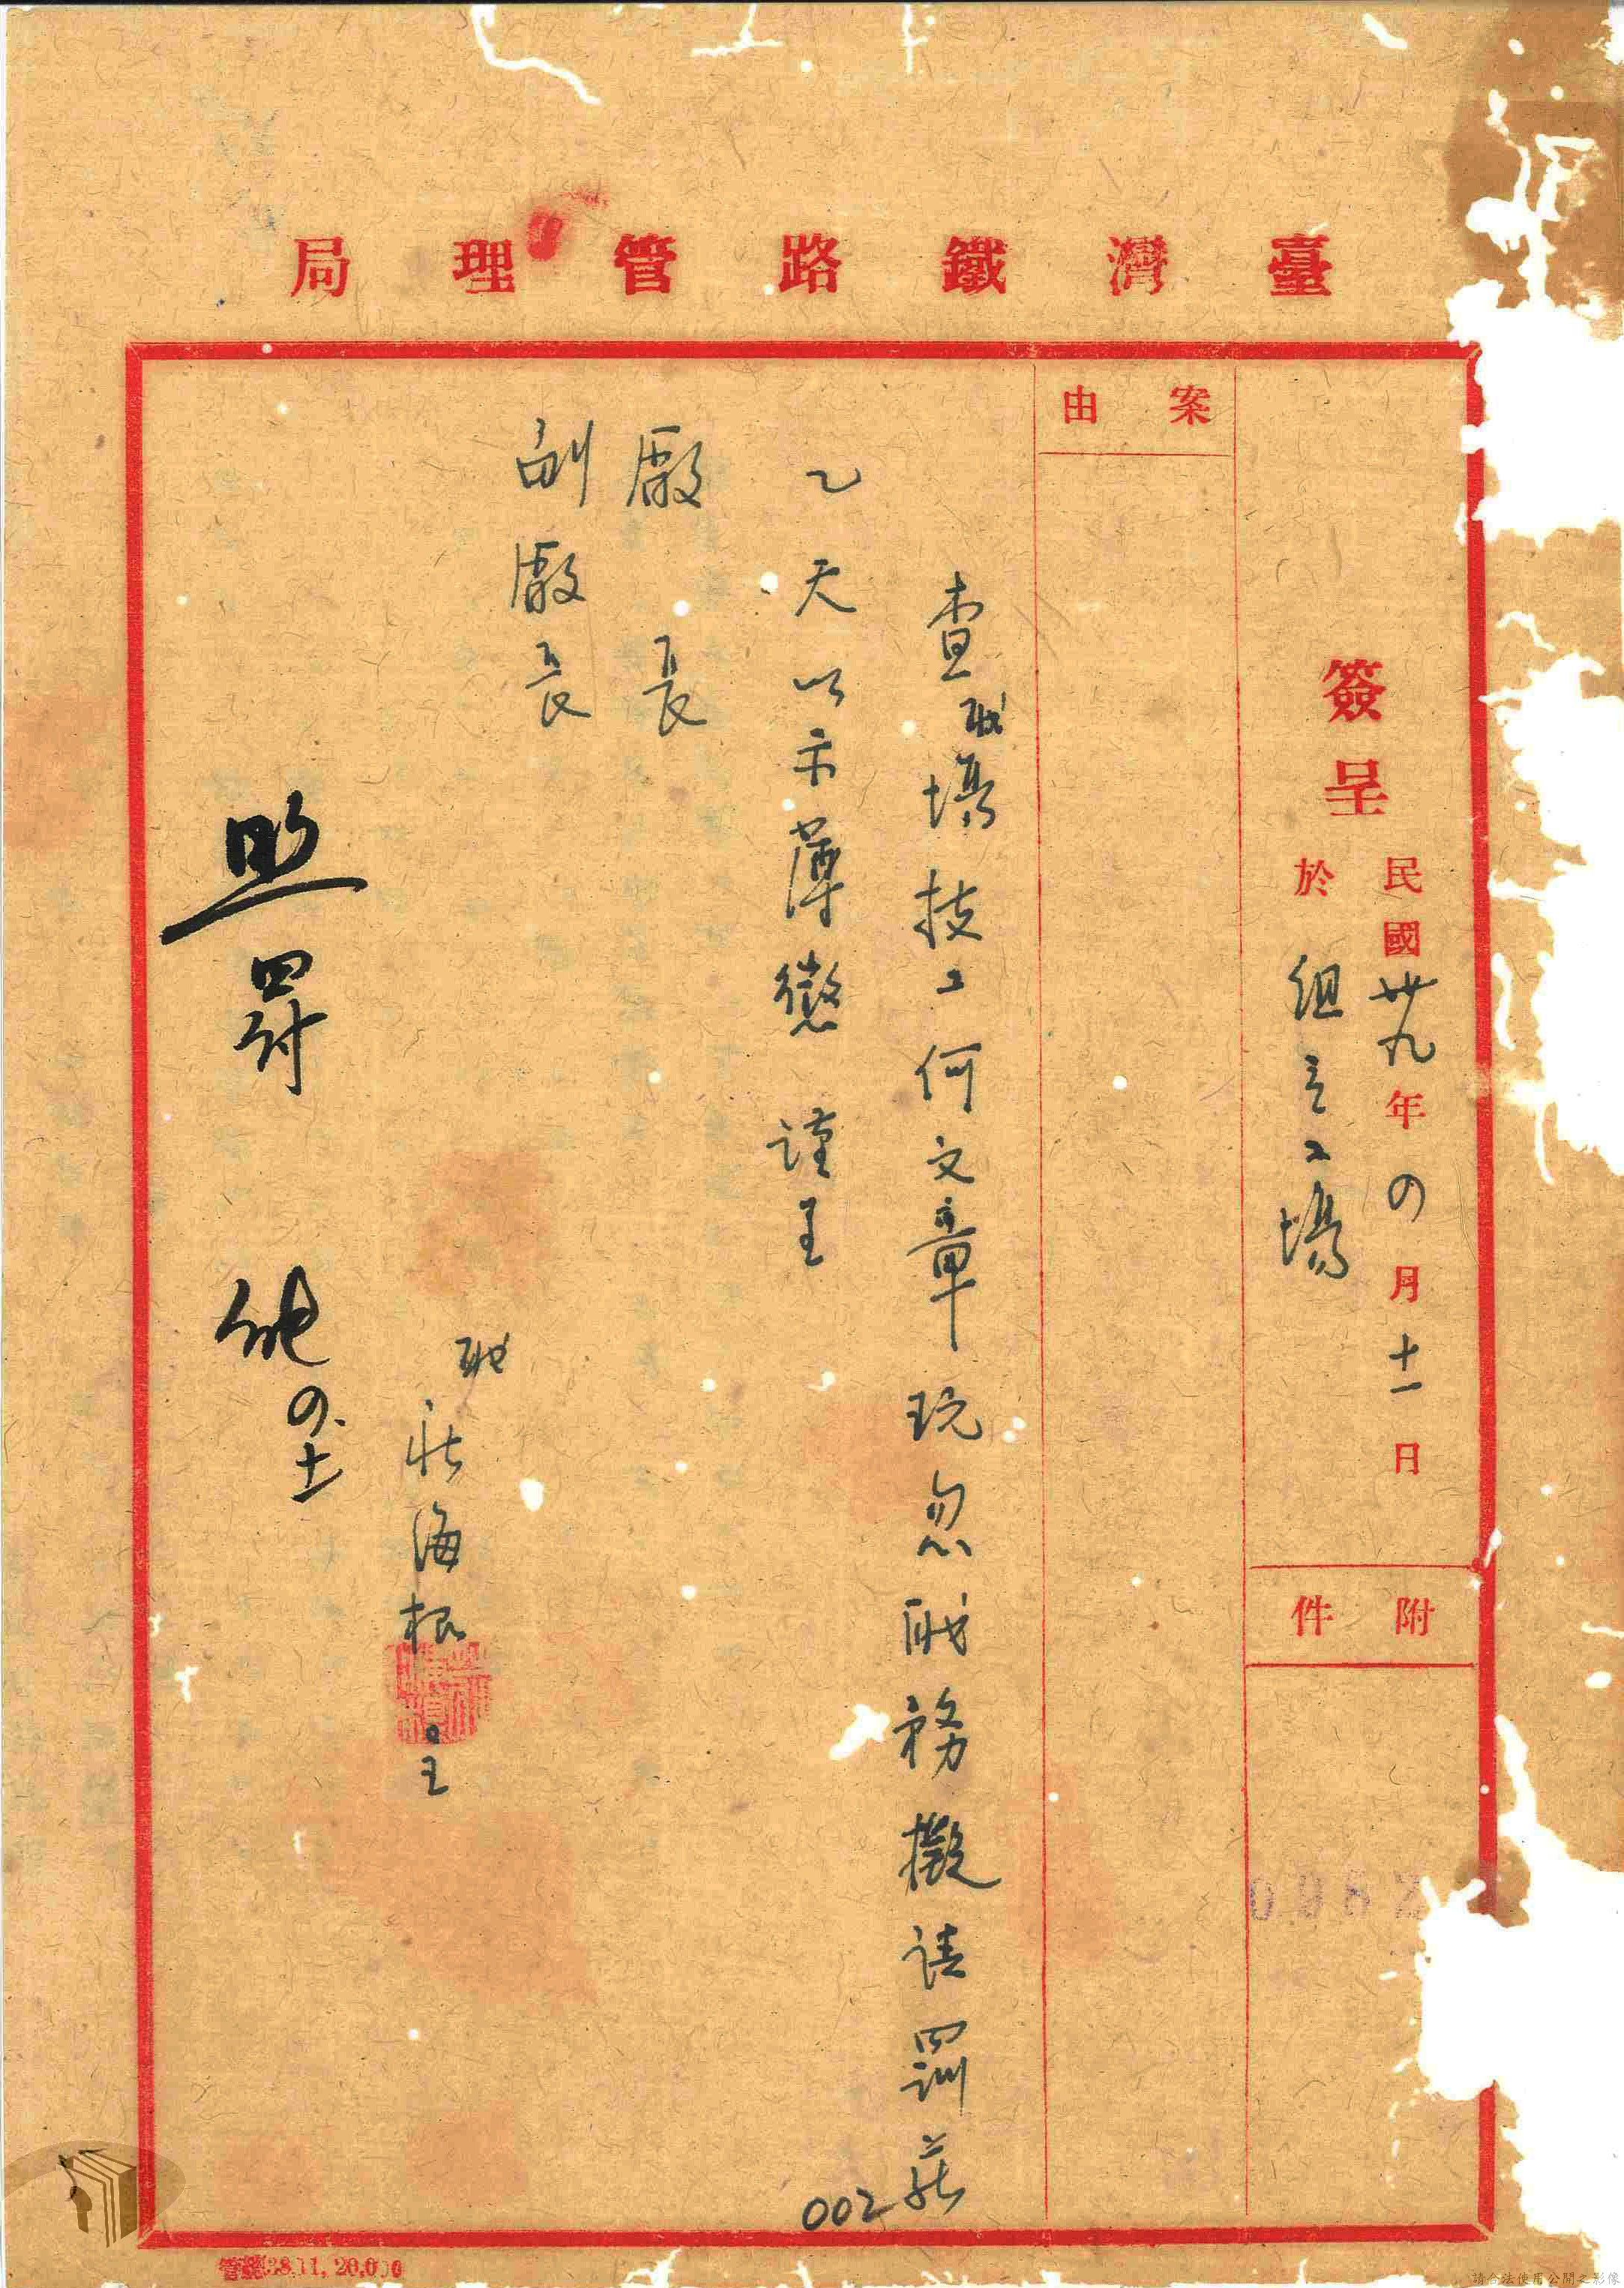 臺灣鐵路管理局
簽呈
民國卅九年の月十一日
於組立工場
附件
0982
案由
查職場技工何文章玩忽職務擬請罰薪
乙天以示薄懲 謹呈
廠長
副廠長
職 莊海根 呈
照罰
の.十一
002
38.11, 20,000
請合法使用公開之影像